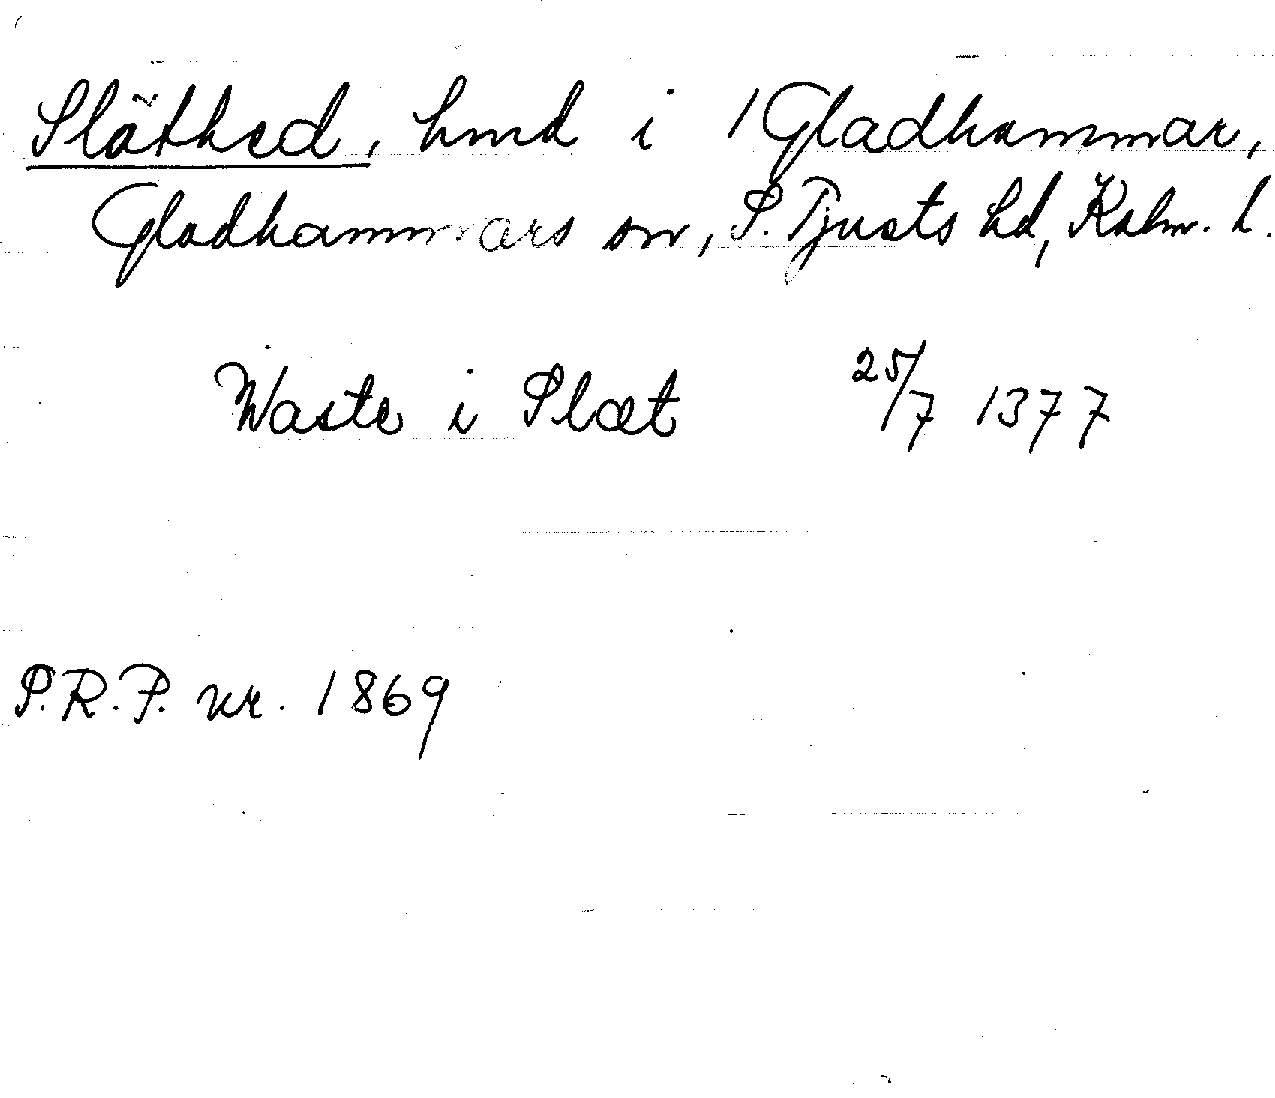 Släthed, hmd i 1 Gladhammar,
Gladhammars sn, S. Tjusts hd, Kalm. l.
Waste i Slæt 25/7 1377
S.R.P. nr. 1869